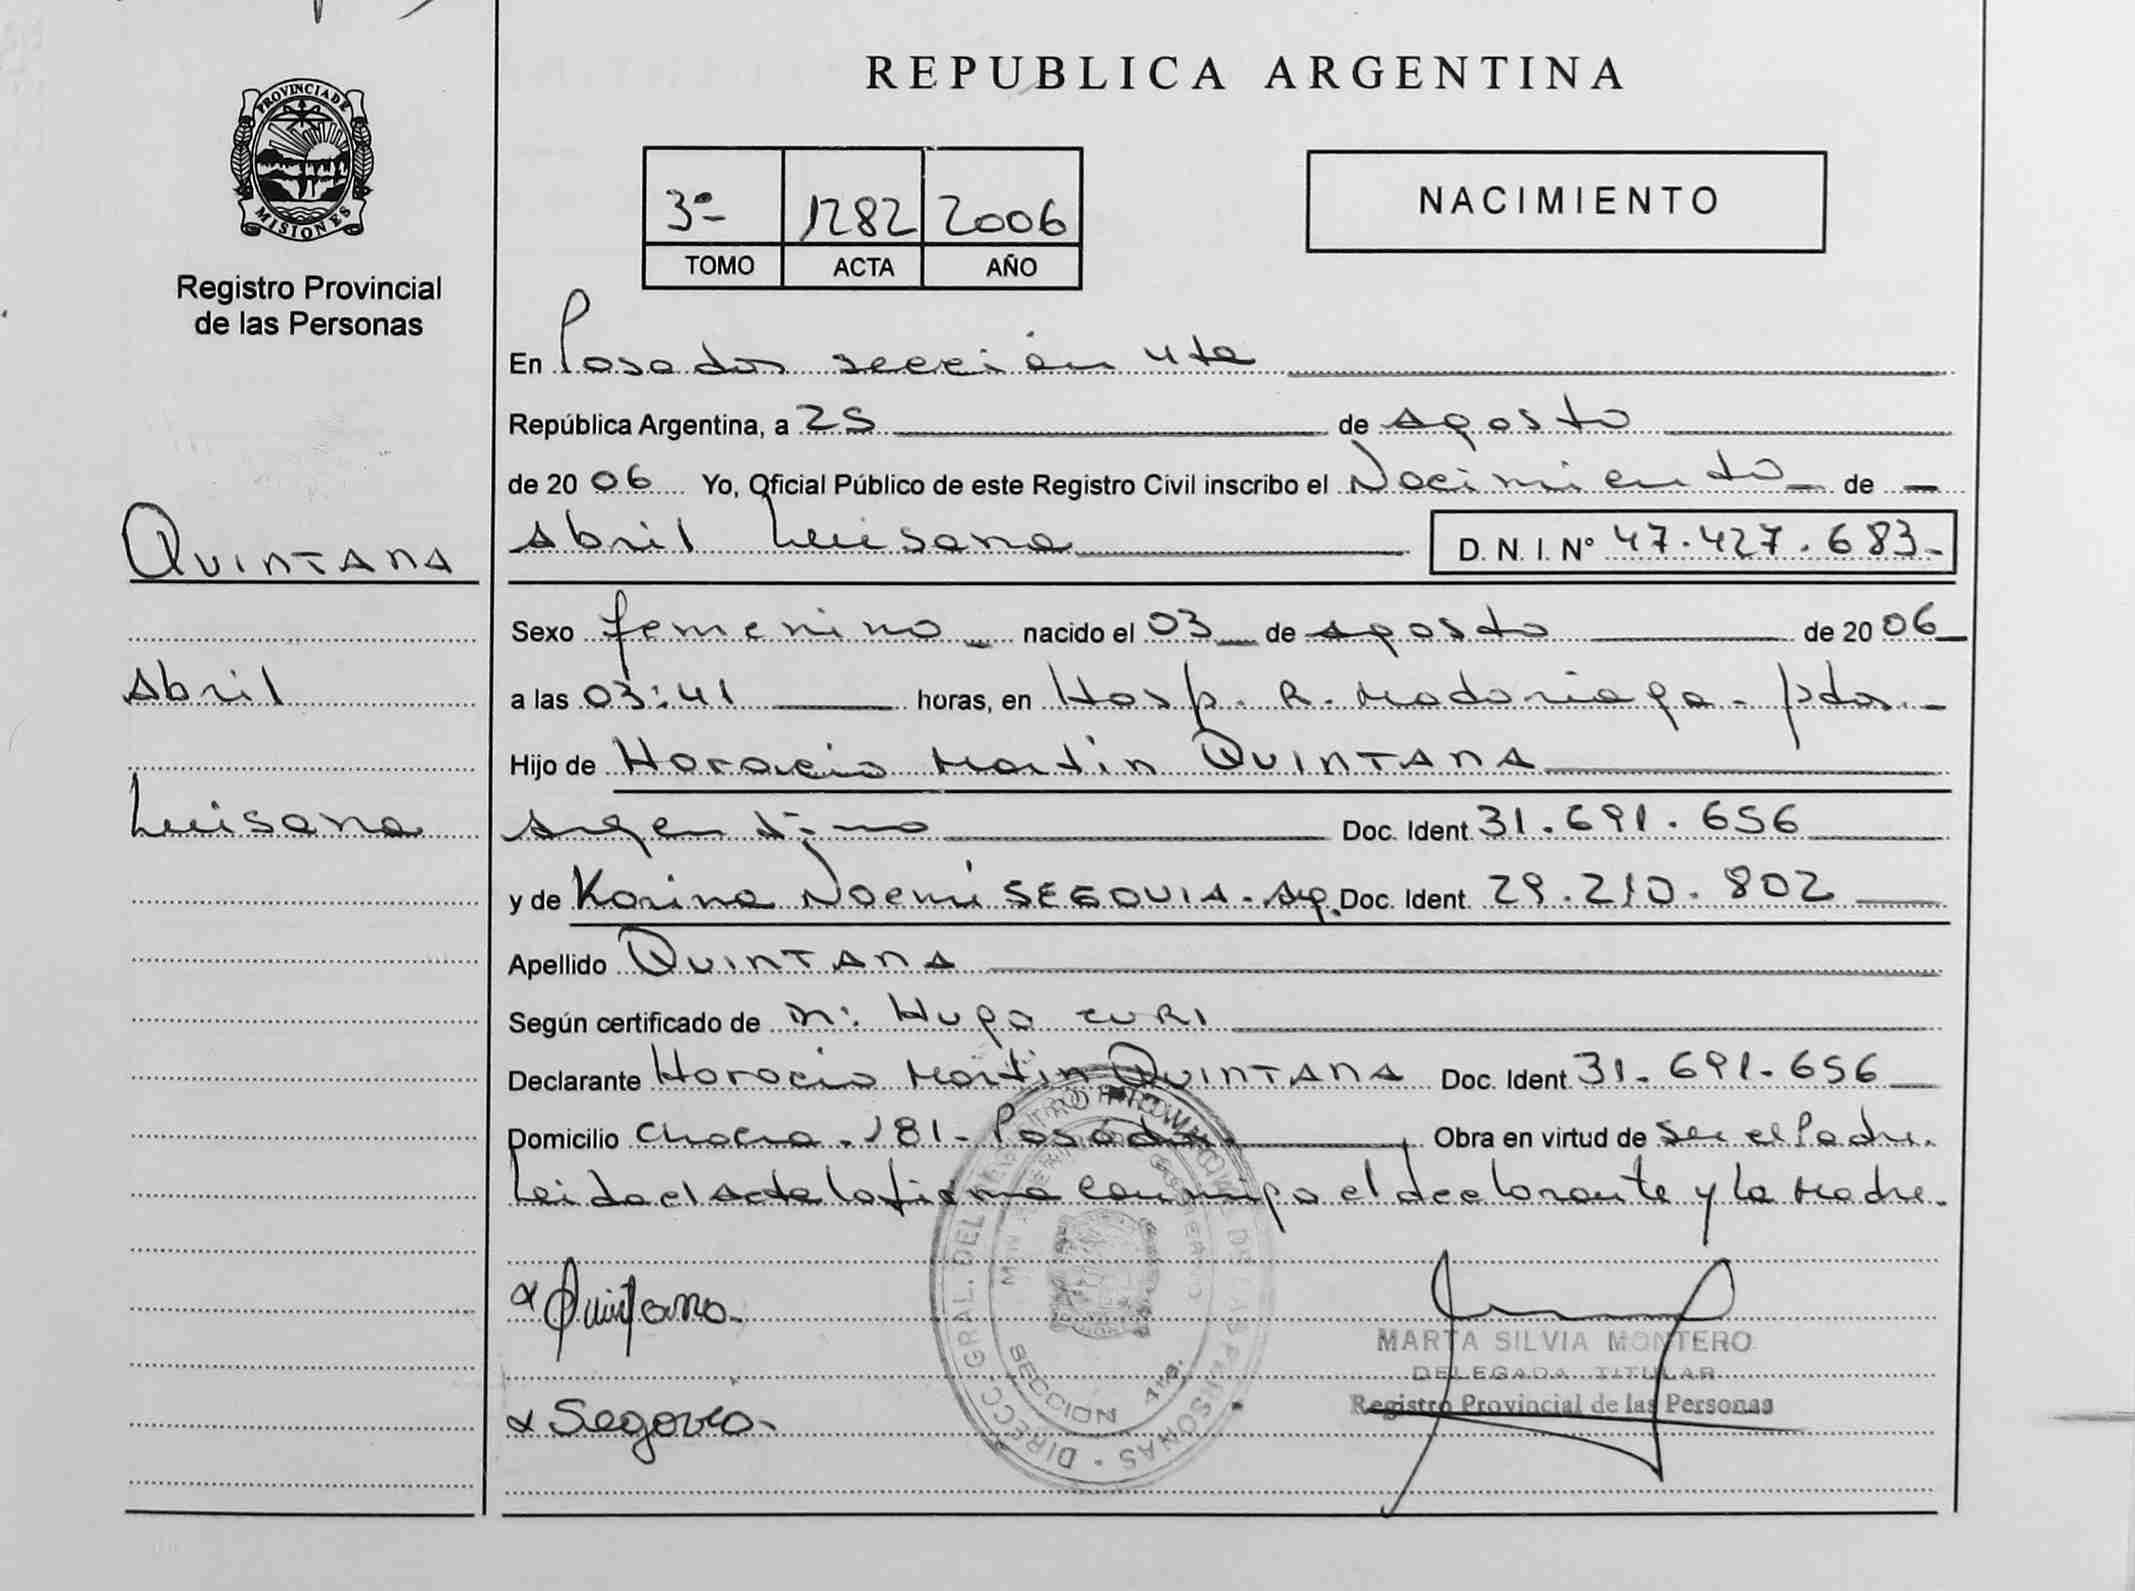 REPUBLICA ARGENTINA
PROVINCIA DE MISIONES
Registro Provincial
de las Personas
3º- 1282 2006
TOMO ACTA AÑO
NACIMIENTO
En Posadas sección 4ta
República Argentina, a 25 de agosto
de 2006 Yo, Oficial Público de este Registro Civil inscribo el Nacimiento de
Abril Luisana D. N. I. Nº 47.427.683-
QUINTANA
Abril
Luisana
Sexo femenino nacido el 03 de agosto de 2006
a las 03:41 horas, en Hosp. R. Madariaga - Pdas.-
Hijo de Horacio Martín QUINTANA
Argentino Doc. Ident. 31.691.656
y de Karina Noemí SEGOVIA - Arg. Doc. Ident. 29.210.802
Apellido QUINTANA
Según certificado de Dr. Hugo CURI
Declarante Horacio Martin QUINTANA Doc. Ident. 31.691.656
Domicilio 181 - Posadas Obra en virtud de ser el Padre.
Leida el acta la firma conmigo el declarante y la Madre.
Quintana
Segovia
DIRECC. GRAL. DEL REGISTRO PROVINCIAL DE LAS PERSONAS
SECCION 4ta.
MARTA SILVIA MONTERO
DELEGADA TITULAR
Registro Provincial de las Personas